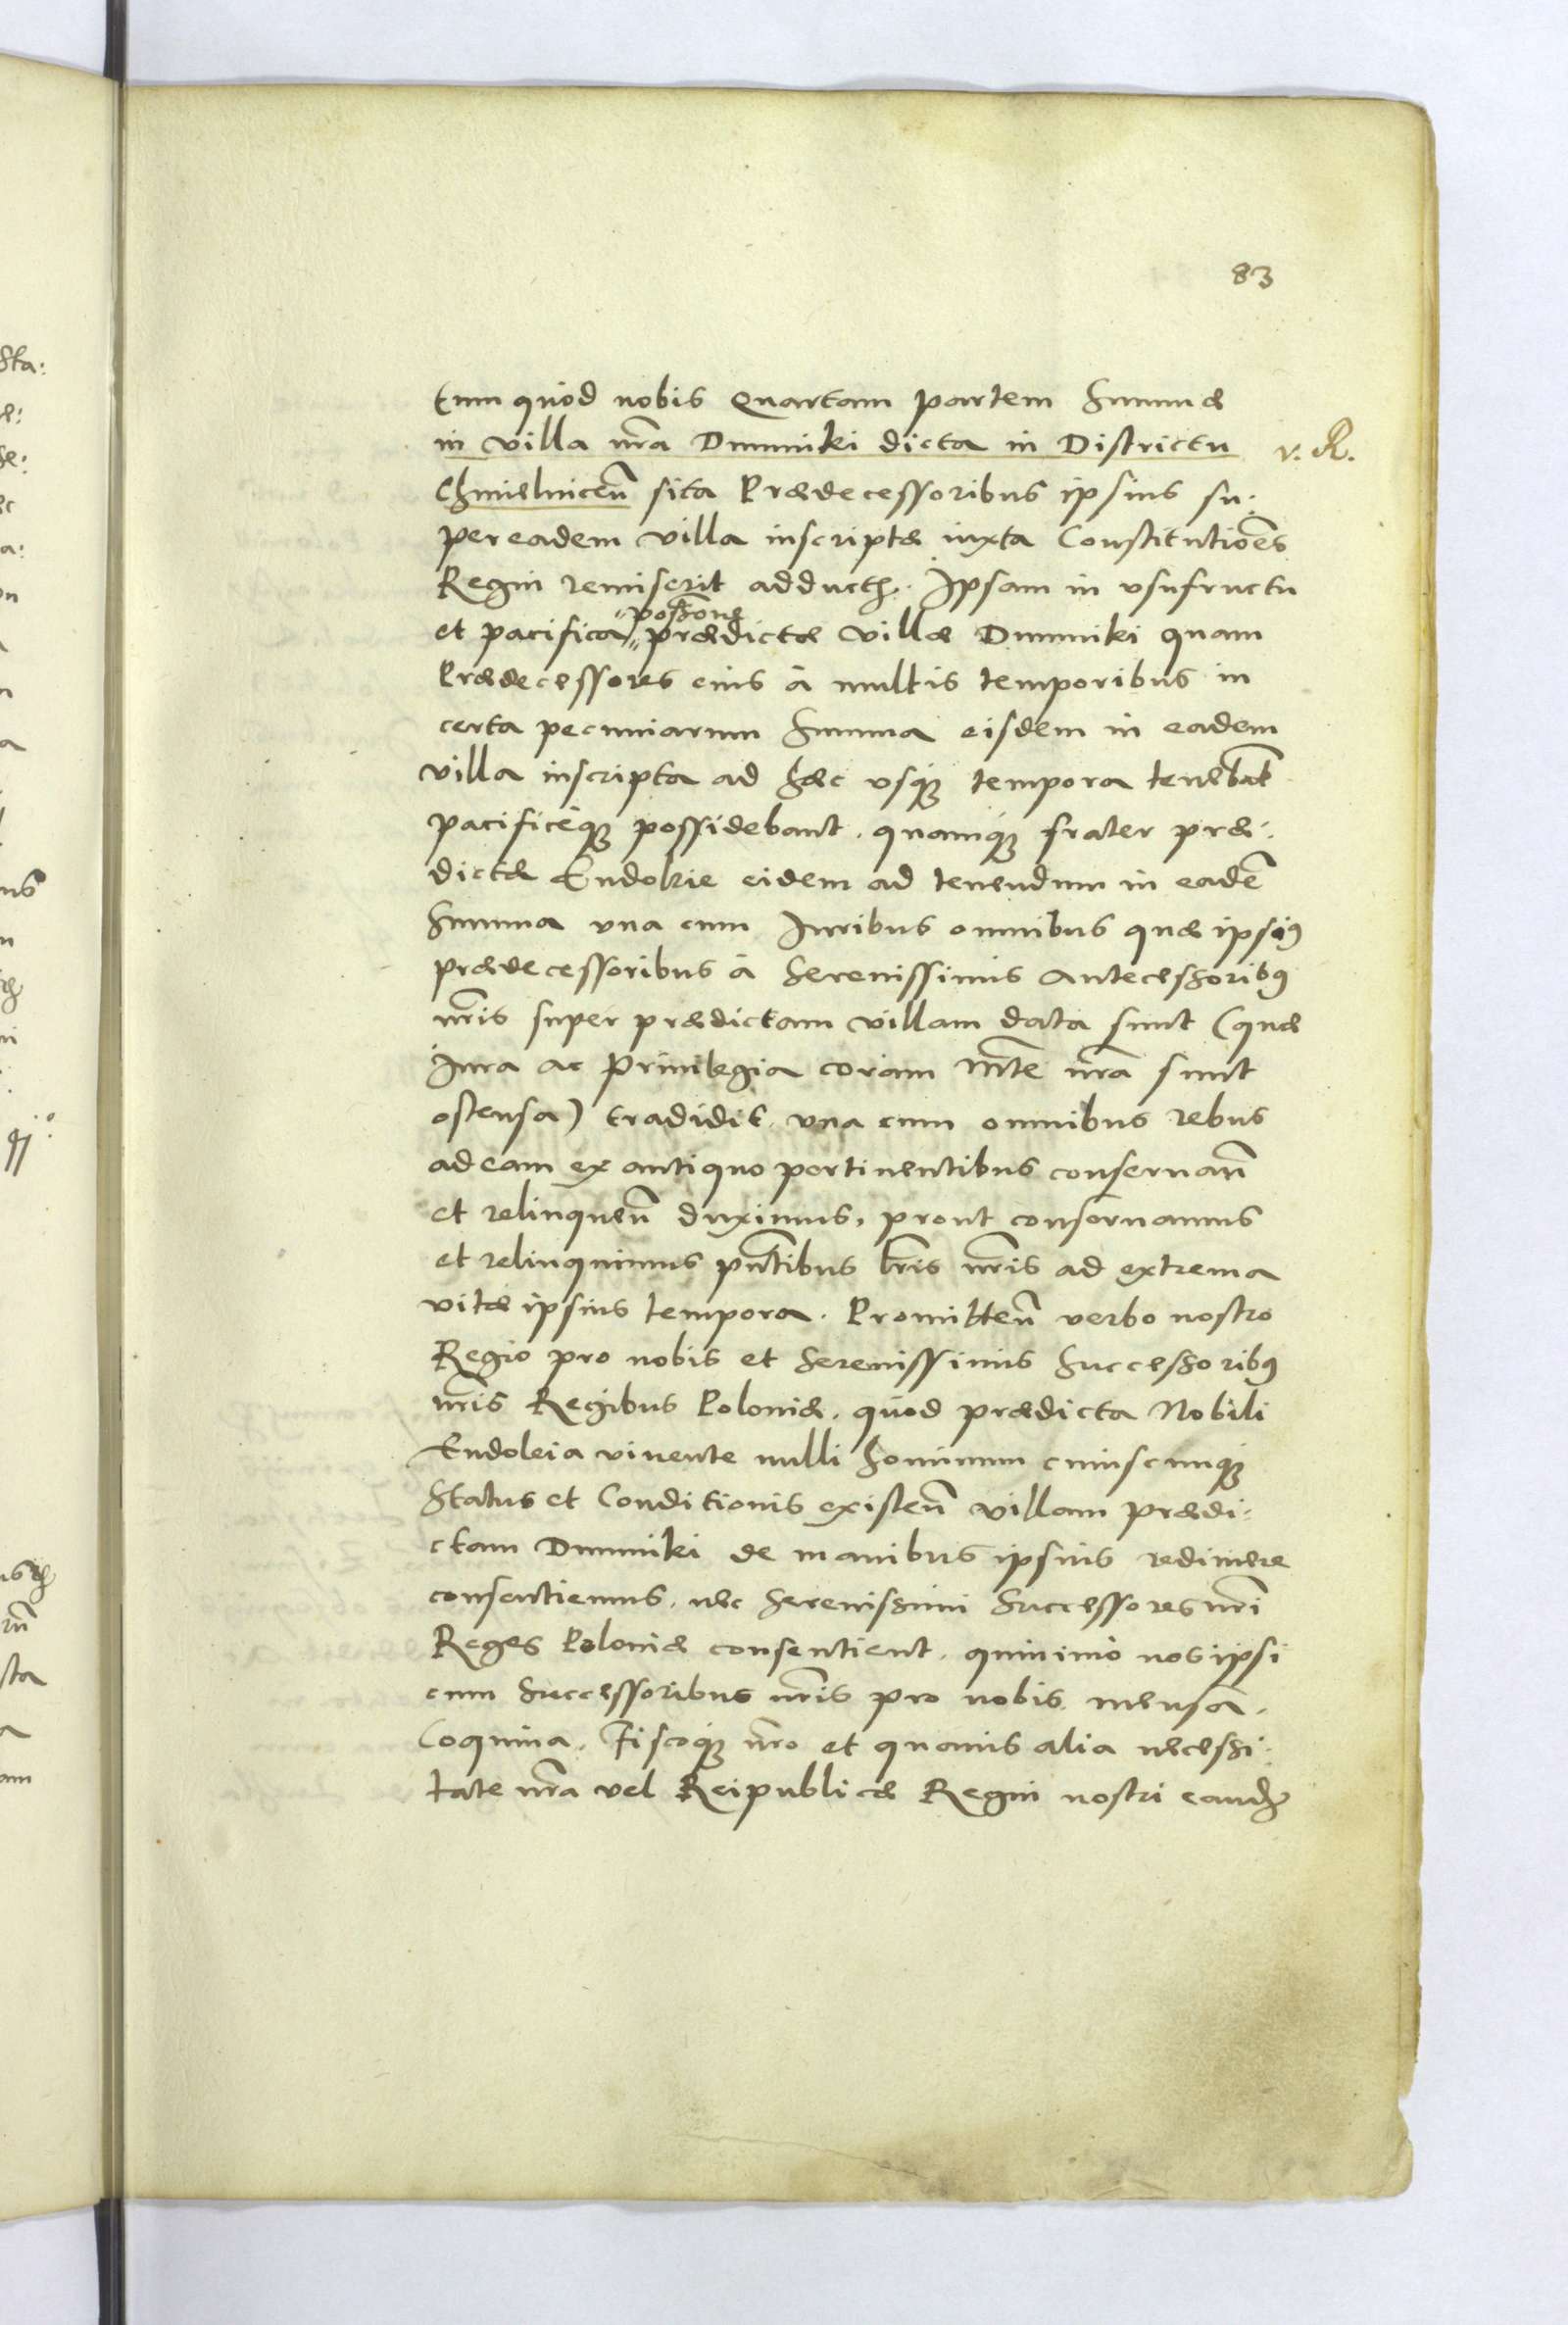 83
tum quòd nobis Quartam partem Summæ
in villa nrã Dumniki dicta in Districtu v. R.
Chmielniceñ sita Prædecessoribus ipsius su:
per eadem villa inscriptæ iuxta Constitutiões
Regni remiserit adducti. Ipsam in vsufructu
et pacifica possione prædictæ villæ Dumniki quam
Prædecessores eius à multis temporibus in
certa pecuniarum Summa eisdem in eadem
villa inscripta ad hæc vsq3 tempora tenebãt
pacificéq3 possidebant. quamq3 frater præ:
dictæ Eudokie eidem ad tenendum in eadẽ
Summa vna cum Iuribus omnibus quæ ipsi9
prædecessoribus à Serenissimis Antecessorib9
nrĩs super prædictam villam data sunt (quæ
Iura ac Priuilegia coram Mtẽ nrã sunt
ostensa) tradidit vna cum omnibus rebus
ad eam ex antiquo pertinentibus conseruañ
et relinqueñ duximus, prout conseruamus
et relinquimus pñtibus lrĩs nrĩs ad extrema
vitæ ipsius tempora. Promitteñ verbo nostro
Regio pro nobis et Serenissimis Successorib9
nrĩs Regibus Poloniæ. quòd prædicta Nobili
Eudokia viuente nulli hominum cuiuscunq3
Status et Conditionis existeñ villam prædi:
ctam Dumniki de manibus ipsius redimere
consentiemus. nec Serenissimi Successores nrĩ
Reges Poloniæ consentient. quinimò nos ipsi
cum Successoribus nrĩs pro nobis mensa.
Coquina. Fiscoq3 nrõ et quauis alia necessi:
tate nrã vel Reipublicæ Regni nostri eand3